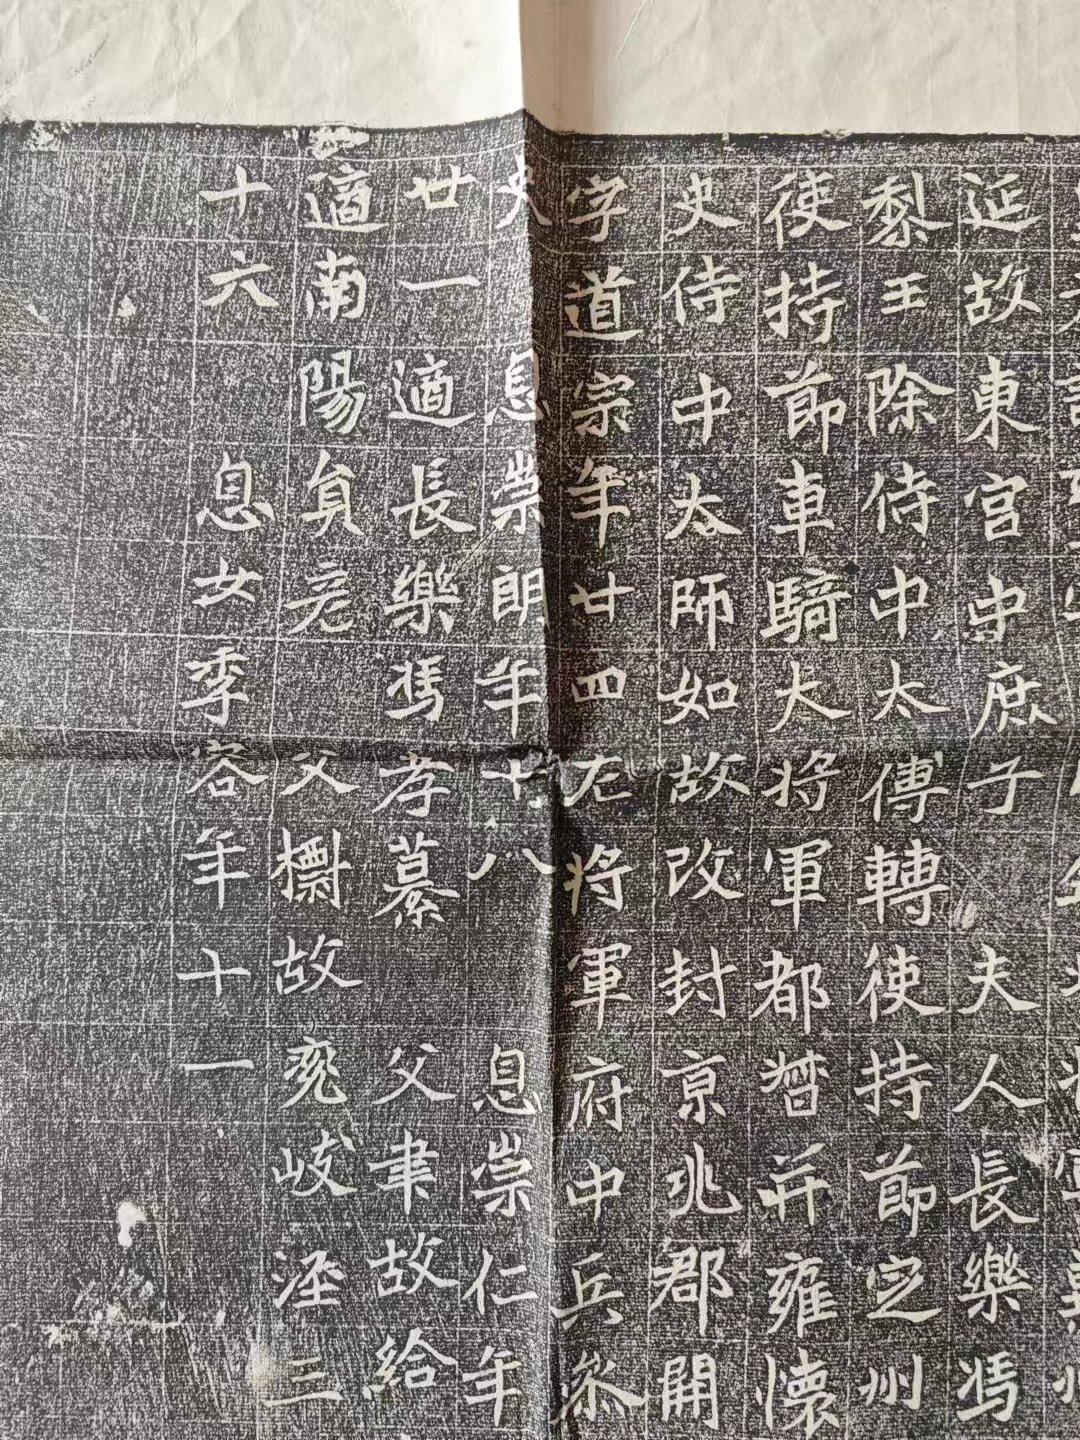 延故東宮中庶子 夫人長樂馮
黎王除侍中太傅轉使持節定州
使持節車騎大將軍都督并雍懷
史侍中太師如故改封京兆郡開
字道宗年廿四左將軍府中兵參
史 息崇朗年十八 息崇仁年
廿一適長樂馮孝纂 父聿故給
適南陽貟彥 父檦故兗岐涇三
十六 息女季容年十一